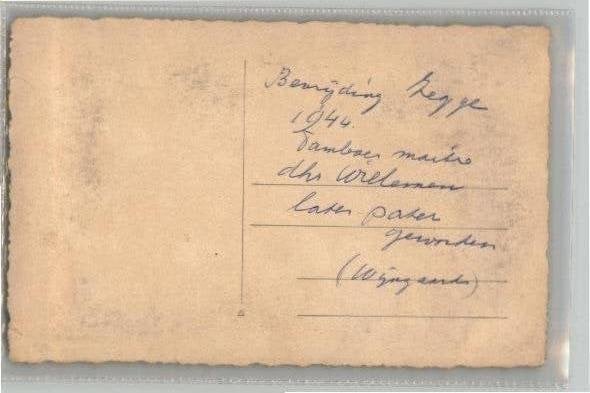 Bevrijding Zegge
1944.
Tamboer maitre
dhr Willemen
later pater
geworden
(Wijngaards)